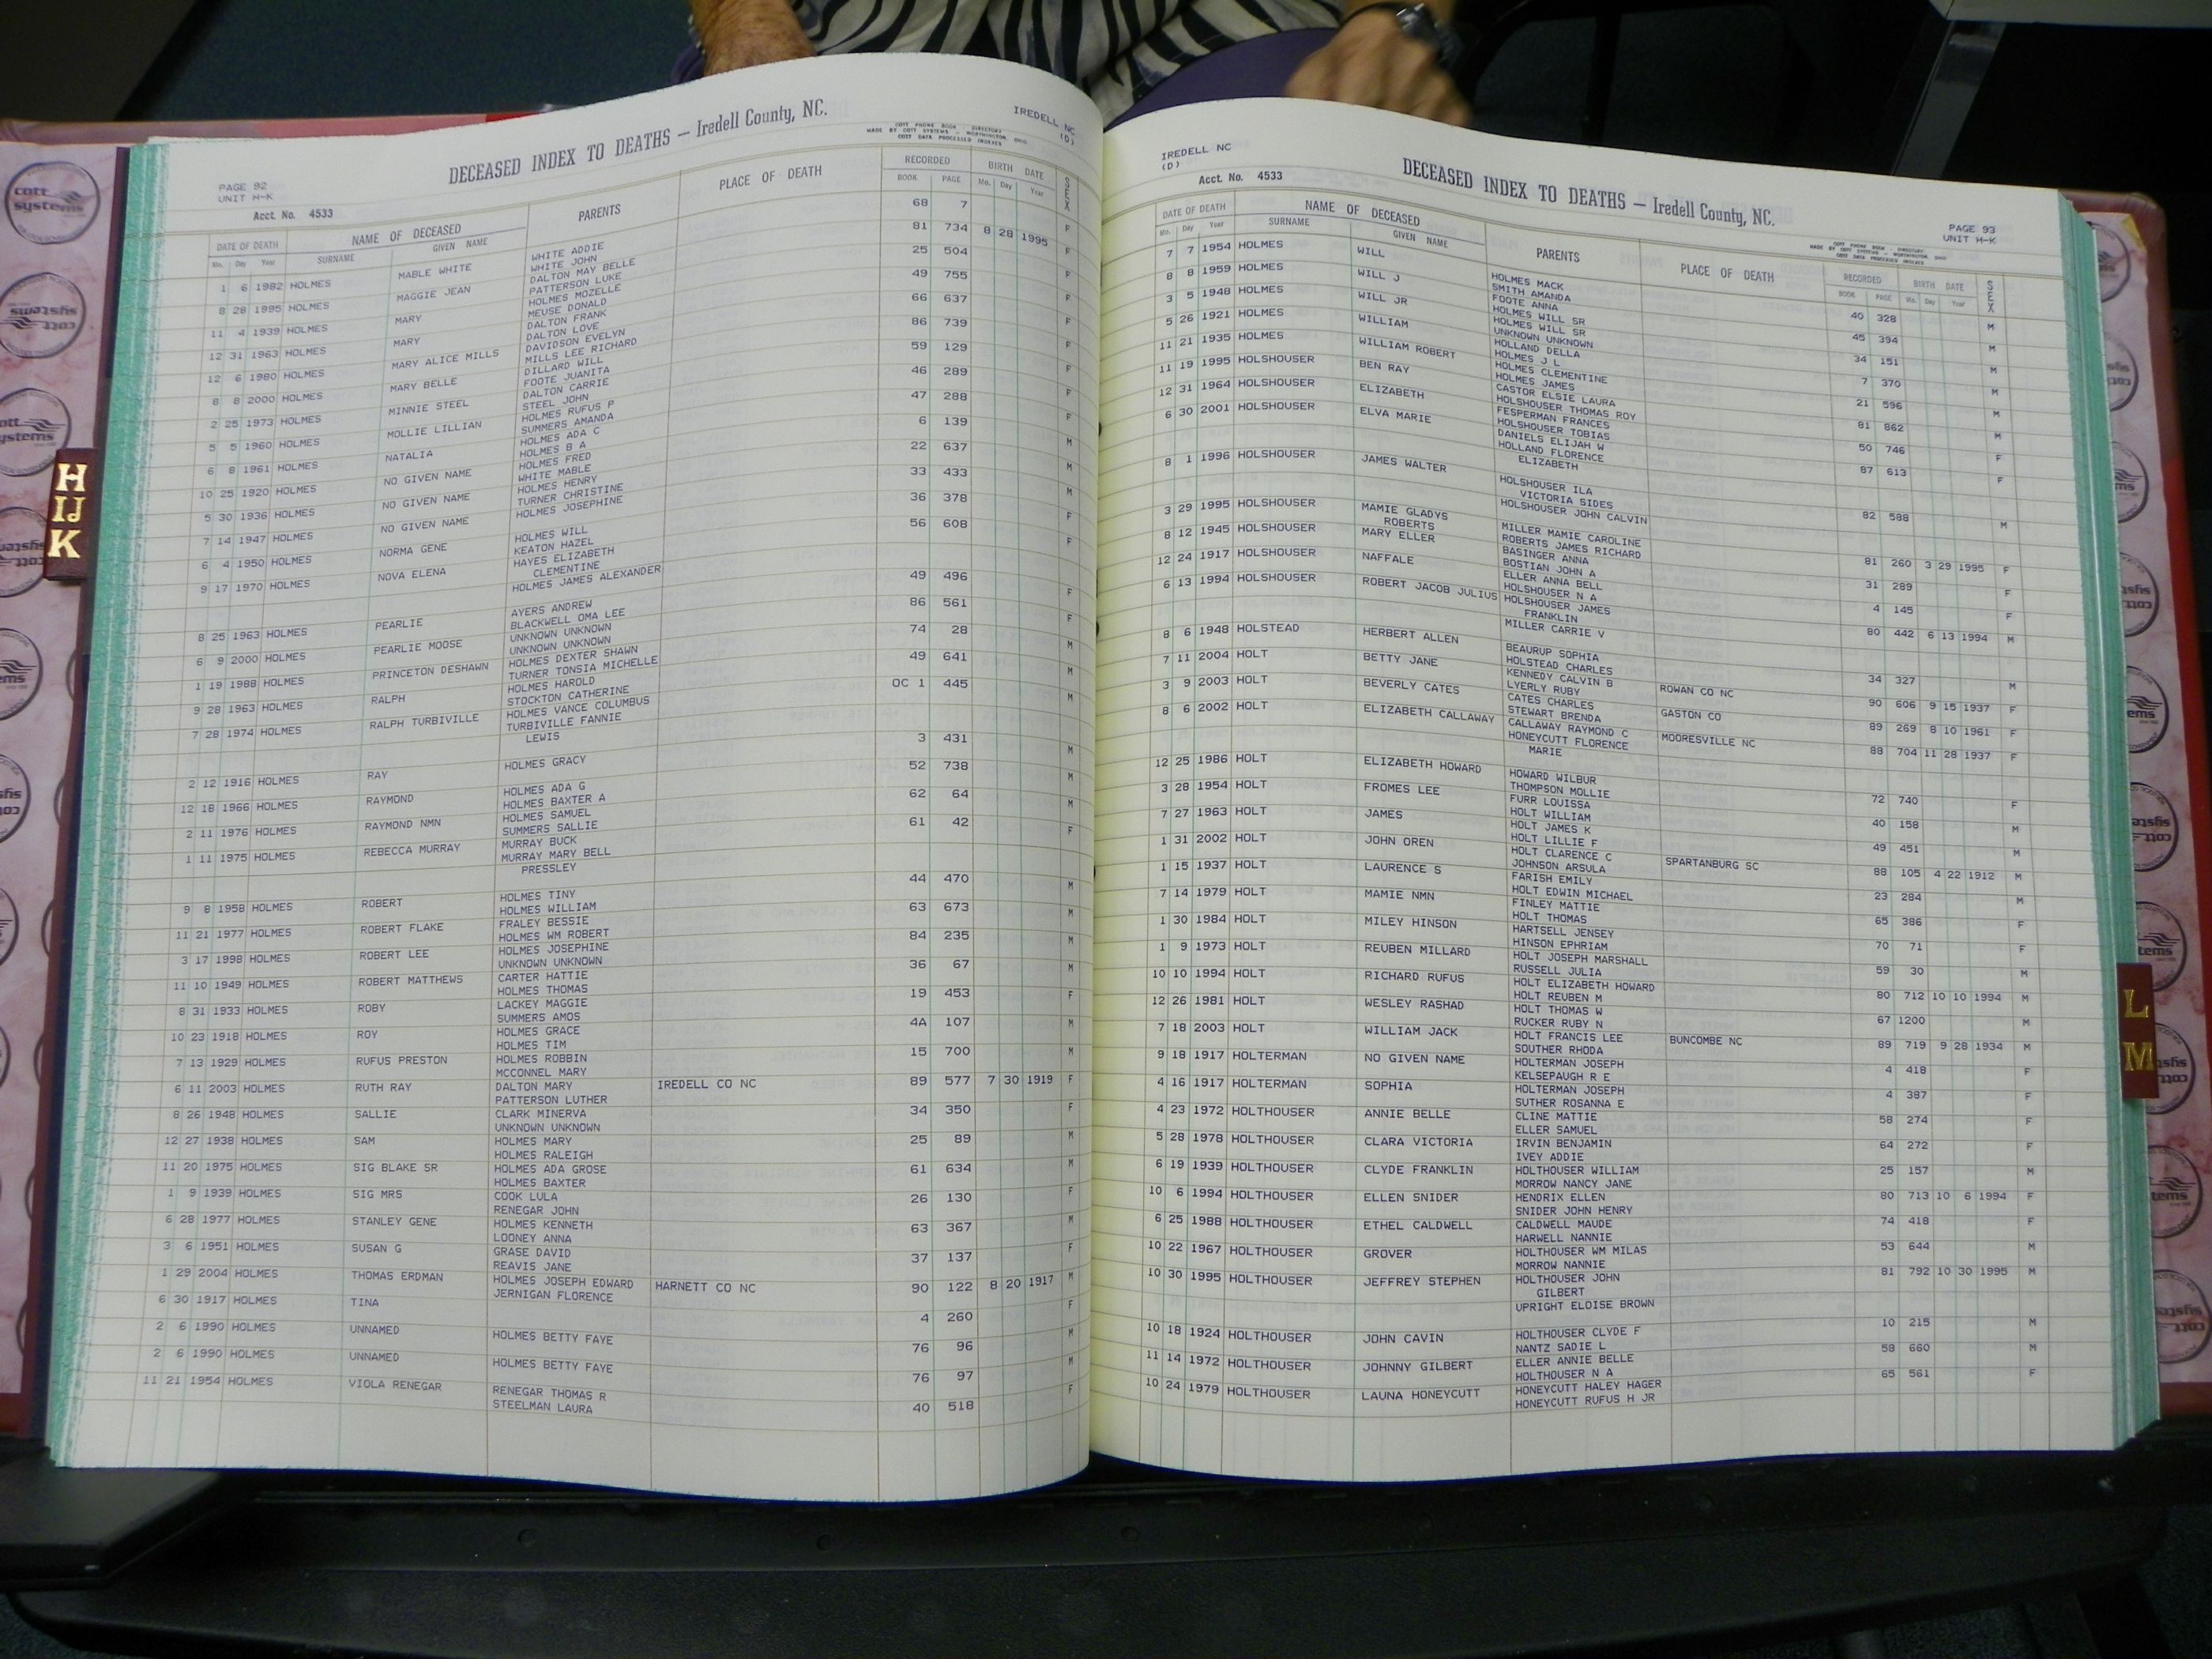 IREDELL NC
(D)
DECEASED INDEX TO DEATHS — Iredell County, NC.
COTT PHONE BOOK - DIRECTORY
MADE BY COTT SYSTEMS - WORTHINGTON, OHIO
COTT DATA PROCESSED INDEXES
PAGE 92
UNIT H-K
Acct. No. 4533
DATE OF DEATH NAME OF DECEASED PARENTS PLACE OF DEATH RECORDED BIRTH DATE SEX
Mo. Day Year SURNAME GIVEN NAME BOOK PAGE Mo. Day Year
1 6 1982 HOLMES MABLE WHITE WHITE ADDIE 68 7 F
WHITE JOHN
8 28 1995 HOLMES MAGGIE JEAN DALTON MAY BELLE 81 734 8 28 1995 F
PATTERSON LUKE
11 4 1939 HOLMES MARY HOLMES MOZELLE 25 504 F
MEUSE DONALD
12 31 1963 HOLMES MARY DALTON FRANK 49 755 F
DALTON LOVE
12 6 1980 HOLMES MARY ALICE MILLS DAVIDSON EVELYN 66 637 F
MILLS LEE RICHARD
8 8 2000 HOLMES MARY BELLE DILLARD WILL 86 739 F
FOOTE JUANITA
2 25 1973 HOLMES MINNIE STEEL DALTON CARRIE 59 129 F
STEEL JOHN
5 5 1960 HOLMES MOLLIE LILLIAN HOLMES RUFUS P 46 289 F
SUMMERS AMANDA
6 8 1961 HOLMES NATALIA HOLMES ADA C 47 288 F
HOLMES B A
10 25 1920 HOLMES NO GIVEN NAME HOLMES FRED 6 139 M
WHITE MABLE
5 30 1936 HOLMES NO GIVEN NAME HOLMES HENRY 22 637 M
TURNER CHRISTINE
7 14 1947 HOLMES NO GIVEN NAME HOLMES JOSEPHINE 33 433 M
6 4 1950 HOLMES NORMA GENE HOLMES WILL 36 378 F
KEATON HAZEL
9 17 1970 HOLMES NOVA ELENA HAYES ELIZABETH 56 608 F
CLEMENTINE
HOLMES JAMES ALEXANDER
8 25 1963 HOLMES PEARLIE AYERS ANDREW 49 496 F
BLACKWELL OMA LEE
6 9 2000 HOLMES PEARLIE MOOSE UNKNOWN UNKNOWN 86 561 F
UNKNOWN UNKNOWN
1 19 1988 HOLMES PRINCETON DESHAWN HOLMES DEXTER SHAWN 74 28 M
TURNER TONSIA MICHELLE
9 28 1963 HOLMES RALPH HOLMES HAROLD 49 641 M
STOCKTON CATHERINE
7 28 1974 HOLMES RALPH TURBIVILLE HOLMES VANCE COLUMBUS OC 1 445 M
TURBIVILLE FANNIE
LEWIS
2 12 1916 HOLMES RAY HOLMES GRACY 3 431 M
12 18 1966 HOLMES RAYMOND HOLMES ADA G 52 738 M
HOLMES BAXTER A
2 11 1976 HOLMES RAYMOND NMN HOLMES SAMUEL 62 64 M
SUMMERS SALLIE
1 11 1975 HOLMES REBECCA MURRAY MURRAY BUCK 61 42 F
MURRAY MARY BELL
PRESSLEY
9 8 1958 HOLMES ROBERT HOLMES TINY 44 470 M
HOLMES WILLIAM
11 21 1977 HOLMES ROBERT FLAKE FRALEY BESSIE 63 673 M
HOLMES WM ROBERT
3 17 1998 HOLMES ROBERT LEE HOLMES JOSEPHINE 84 235 M
UNKNOWN UNKNOWN
11 10 1949 HOLMES ROBERT MATTHEWS CARTER HATTIE 36 67 M
HOLMES THOMAS
8 31 1933 HOLMES ROBY LACKEY MAGGIE 19 453 F
SUMMERS AMOS
10 23 1918 HOLMES ROY HOLMES GRACE 4A 107 M
HOLMES TIM
7 13 1929 HOLMES RUFUS PRESTON HOLMES ROBBIN 15 700 M
MCCONNEL MARY
6 11 2003 HOLMES RUTH RAY DALTON MARY IREDELL CO NC 89 577 7 30 1919 F
PATTERSON LUTHER
8 26 1948 HOLMES SALLIE CLARK MINERVA 34 350 F
UNKNOWN UNKNOWN
12 27 1938 HOLMES SAM HOLMES MARY 25 89 M
HOLMES RALEIGH
11 20 1975 HOLMES SIG BLAKE SR HOLMES ADA GROSE 61 634 M
HOLMES BAXTER
1 9 1939 HOLMES SIG MRS COOK LULA 26 130 F
RENEGAR JOHN
6 28 1977 HOLMES STANLEY GENE HOLMES KENNETH 63 367 M
LOONEY ANNA
3 6 1951 HOLMES SUSAN G GRASE DAVID 37 137 F
REAVIS JANE
1 29 2004 HOLMES THOMAS ERDMAN HOLMES JOSEPH EDWARD HARNETT CO NC 90 122 8 20 1917 M
JERNIGAN FLORENCE
6 30 1917 HOLMES TINA 4 260 F
2 6 1990 HOLMES UNNAMED HOLMES BETTY FAYE 76 96 M
2 6 1990 HOLMES UNNAMED HOLMES BETTY FAYE 76 97 M
11 21 1954 HOLMES VIOLA RENEGAR RENEGAR THOMAS R 40 518 F
STEELMAN LAURA
IREDELL NC
(D)
Acct. No. 4533
DECEASED INDEX TO DEATHS — Iredell County, NC.
PAGE 93
UNIT H-K
COTT PHONE BOOK - DIRECTORY
MADE BY COTT SYSTEMS - WORTHINGTON, OHIO
COTT DATA PROCESSED INDEXES
DATE OF DEATH NAME OF DECEASED PARENTS PLACE OF DEATH RECORDED BIRTH DATE SEX
Mo. Day Year SURNAME GIVEN NAME BOOK PAGE Mo. Day Year
7 7 1954 HOLMES WILL HOLMES MACK 40 328 M
SMITH AMANDA
8 8 1959 HOLMES WILL J FOOTE ANNA 45 394 M
HOLMES WILL SR
3 5 1948 HOLMES WILL JR HOLMES WILL SR 34 151 M
UNKNOWN UNKNOWN
5 26 1921 HOLMES WILLIAM HOLLAND DELLA 7 370 M
HOLMES J L
11 21 1935 HOLMES WILLIAM ROBERT HOLMES CLEMENTINE 21 596 M
HOLMES JAMES
11 19 1995 HOLSHOUSER BEN RAY CASTOR ELSIE LAURA 81 862 M
HOLSHOUSER THOMAS ROY
12 31 1964 HOLSHOUSER ELIZABETH FESPERMAN FRANCES 50 746 F
HOLSHOUSER TOBIAS
6 30 2001 HOLSHOUSER ELVA MARIE DANIELS ELIJAH W 87 613 F
HOLLAND FLORENCE
ELIZABETH
8 1 1996 HOLSHOUSER JAMES WALTER HOLSHOUSER ILA 82 588 M
VICTORIA SIDES
HOLSHOUSER JOHN CALVIN
3 29 1995 HOLSHOUSER MAMIE GLADYS MILLER MAMIE CAROLINE 81 260 3 29 1995 F
ROBERTS ROBERTS JAMES RICHARD
8 12 1945 HOLSHOUSER MARY ELLER BASINGER ANNA 31 289 F
BOSTIAN JOHN A
12 24 1917 HOLSHOUSER NAFFALE ELLER ANNA BELL 4 145 F
HOLSHOUSER N A
6 13 1994 HOLSHOUSER ROBERT JACOB JULIUS HOLSHOUSER JAMES 80 442 6 13 1994 M
FRANKLIN
MILLER CARRIE V
8 6 1948 HOLSTEAD HERBERT ALLEN BEAURUP SOPHIA 34 327 M
HOLSTEAD CHARLES
7 11 2004 HOLT BETTY JANE KENNEDY CALVIN B ROWAN CO NC 90 606 9 15 1937 F
LYERLY RUBY
3 9 2003 HOLT BEVERLY CATES CATES CHARLES GASTON CO 89 269 8 10 1961 F
STEWART BRENDA
8 6 2002 HOLT ELIZABETH CALLAWAY CALLAWAY RAYMOND C MOORESVILLE NC 88 704 11 28 1937 F
HONEYCUTT FLORENCE
MARIE
12 25 1986 HOLT ELIZABETH HOWARD HOWARD WILBUR 72 740 F
THOMPSON MOLLIE
3 28 1954 HOLT FROMES LEE FURR LOUISSA 40 158 M
HOLT WILLIAM
7 27 1963 HOLT JAMES HOLT JAMES K 49 451 M
HOLT LILLIE F
1 31 2002 HOLT JOHN OREN HOLT CLARENCE C SPARTANBURG SC 88 105 4 22 1912 M
JOHNSON ARSULA
1 15 1937 HOLT LAURENCE S FARISH EMILY 23 284 M
HOLT EDWIN MICHAEL
7 14 1979 HOLT MAMIE NMN FINLEY MATTIE 65 386 F
HOLT THOMAS
1 30 1984 HOLT MILEY HINSON HARTSELL JENSEY 70 71 F
HINSON EPHRIAM
1 9 1973 HOLT REUBEN MILLARD HOLT JOSEPH MARSHALL 59 30 M
RUSSELL JULIA
10 10 1994 HOLT RICHARD RUFUS HOLT ELIZABETH HOWARD 80 712 10 10 1994 M
HOLT REUBEN M
12 26 1981 HOLT WESLEY RASHAD HOLT THOMAS W 67 1200 M
RUCKER RUBY N
7 18 2003 HOLT WILLIAM JACK HOLT FRANCIS LEE BUNCOMBE NC 89 719 9 28 1934 M
SOUTHER RHODA
9 18 1917 HOLTERMAN NO GIVEN NAME HOLTERMAN JOSEPH 4 418 F
KELSEPAUGH R E
4 16 1917 HOLTERMAN SOPHIA HOLTERMAN JOSEPH 4 387 F
SUTHER ROSANNA E
4 23 1972 HOLTHOUSER ANNIE BELLE CLINE MATTIE 58 274 F
ELLER SAMUEL
5 28 1978 HOLTHOUSER CLARA VICTORIA IRVIN BENJAMIN 64 272 F
IVEY ADDIE
6 19 1939 HOLTHOUSER CLYDE FRANKLIN HOLTHOUSER WILLIAM 25 157 M
MORROW NANCY JANE
10 6 1994 HOLTHOUSER ELLEN SNIDER HENDRIX ELLEN 80 713 10 6 1994 F
SNIDER JOHN HENRY
6 25 1988 HOLTHOUSER ETHEL CALDWELL CALDWELL MAUDE 74 418 F
HARWELL NANNIE
10 22 1967 HOLTHOUSER GROVER HOLTHOUSER WM MILAS 53 644 M
MORROW NANNIE
10 30 1995 HOLTHOUSER JEFFREY STEPHEN HOLTHOUSER JOHN 81 792 10 30 1995 M
GILBERT
UPRIGHT ELOISE BROWN
10 18 1924 HOLTHOUSER JOHN CAVIN HOLTHOUSER CLYDE F 10 215 M
NANTZ SADIE L
11 14 1972 HOLTHOUSER JOHNNY GILBERT ELLER ANNIE BELLE 58 660 M
HOLTHOUSER N A
10 24 1979 HOLTHOUSER LAUNA HONEYCUTT HONEYCUTT HALEY HAGER 65 561 F
HONEYCUTT RUFUS H JR
H
IJ
K
L
M
cott
systems